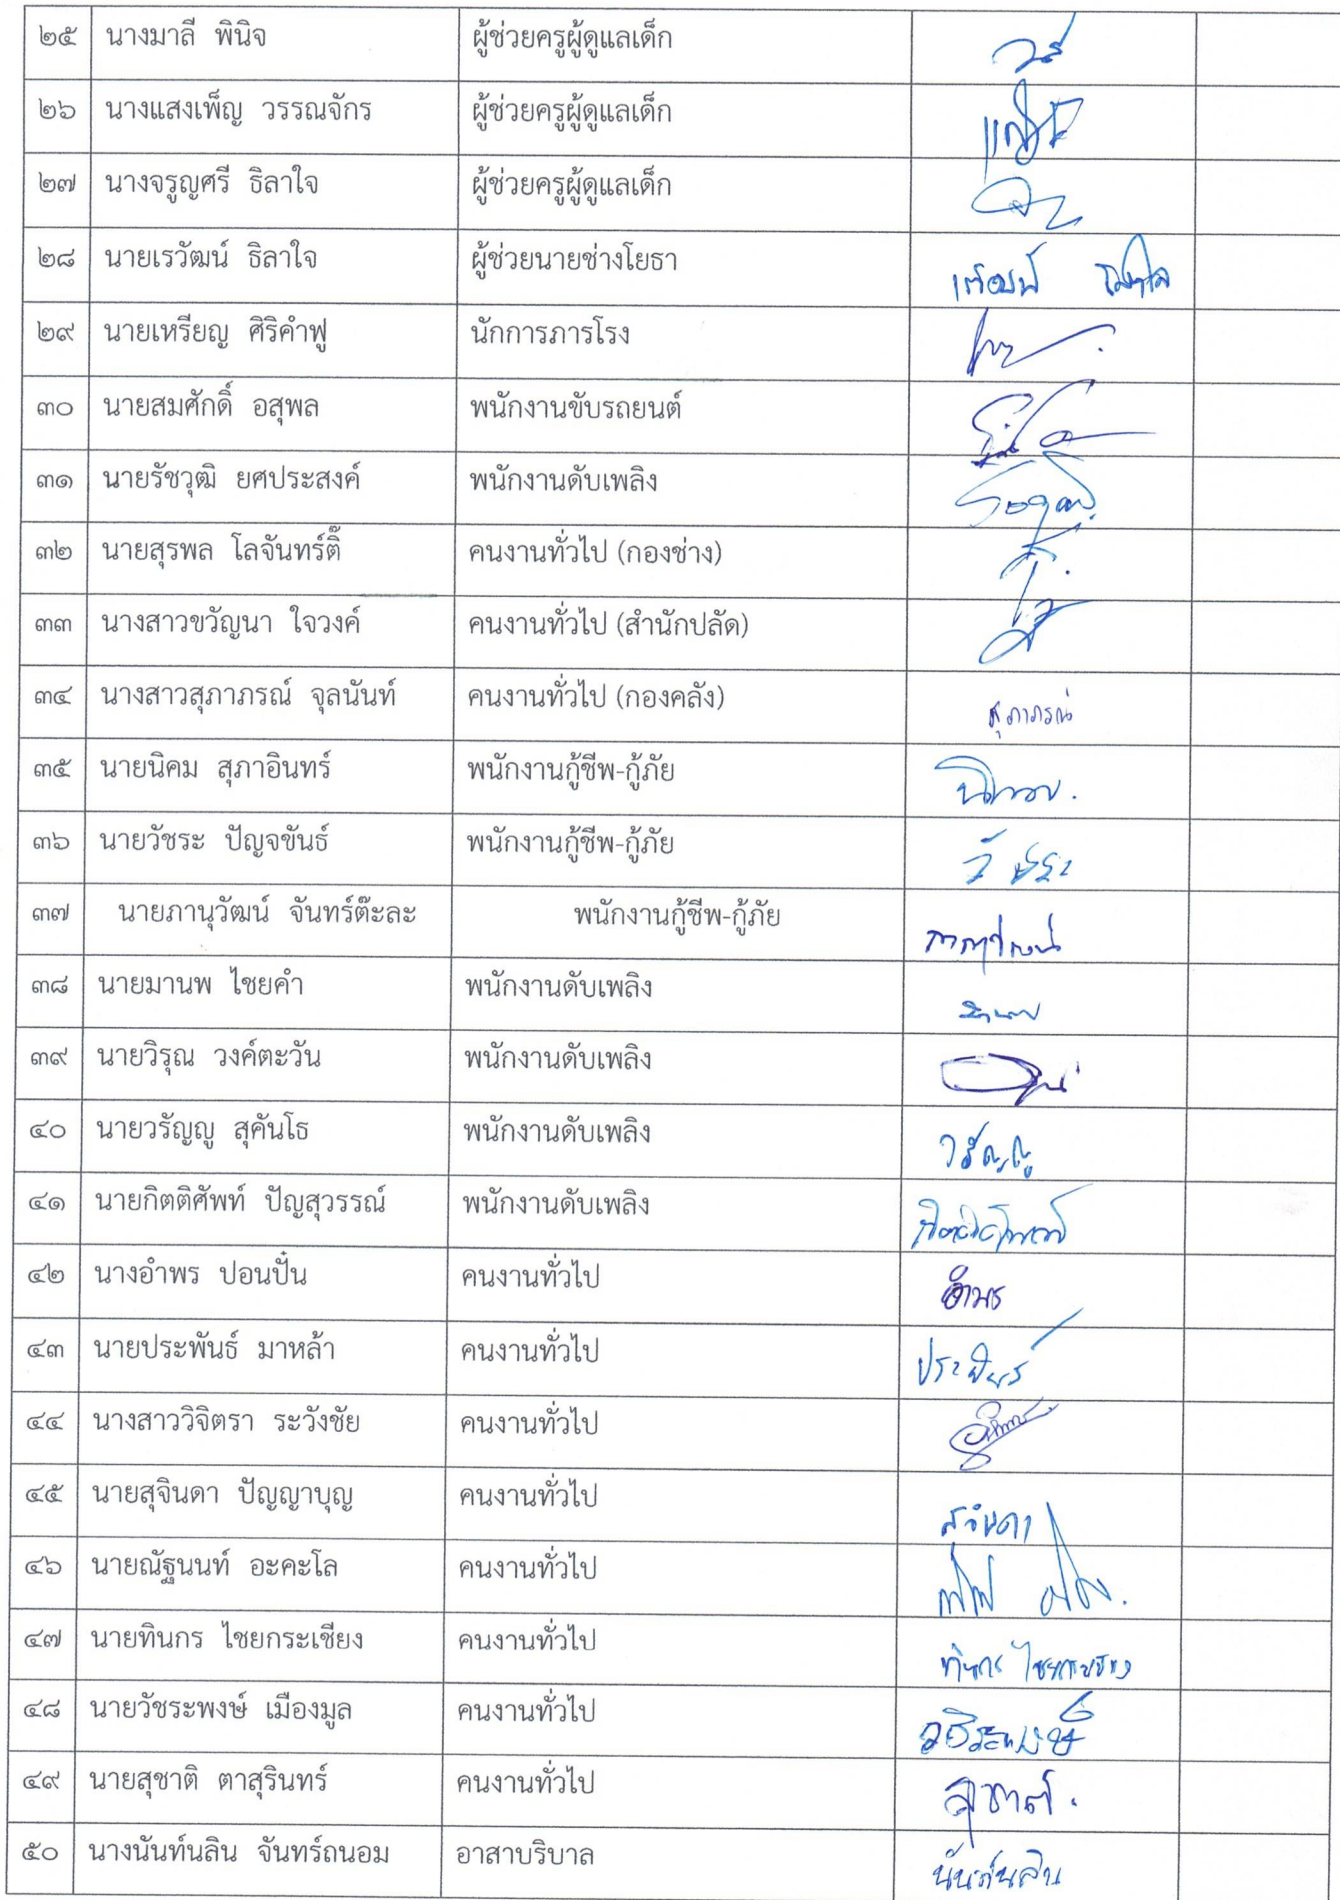 ๒๕ นางมาลี พินิจ ผู้ช่วยครูผู้ดูแลเด็ก
๒๖ นางแสงเพ็ญ วรรณจักร ผู้ช่วยครูผู้ดูแลเด็ก
๒๗ นางจรูญศรี ธิลาใจ ผู้ช่วยครูผู้ดูแลเด็ก
๒๘ นายเรวัฒน์ ธิลาใจ ผู้ช่วยนายช่างโยธา
๒๙ นายเหรียญ ศิริคำฟู นักการภารโรง
๓๐ นายสมศักดิ์ อสุพล พนักงานขับรถยนต์
๓๑ นายรัชวุฒิ ยศประสงค์ พนักงานดับเพลิง
๓๒ นายสุรพล โลจันทร์ติ๊ คนงานทั่วไป (กองช่าง)
๓๓ นางสาวขวัญนา ใจวงค์ คนงานทั่วไป (สำนักปลัด)
๓๔ นางสาวสุภาภรณ์ จุลนันท์ คนงานทั่วไป (กองคลัง) สุภาภรณ์
๓๕ นายนิคม สุภาอินทร์ พนักงานกู้ชีพ-กู้ภัย
๓๖ นายวัชระ ปัญจขันธ์ พนักงานกู้ชีพ-กู้ภัย วัชระ
๓๗ นายภานุวัฒน์ จันทร์ต๊ะละ พนักงานกู้ชีพ-กู้ภัย
๓๘ นายมานพ ไชยคำ พนักงานดับเพลิง
๓๙ นายวิรุณ วงค์ตะวัน พนักงานดับเพลิง
๔๐ นายวรัญญู สุคันโธ พนักงานดับเพลิง วรัญญู
๔๑ นายกิตติศัพท์ ปัญสุวรรณ์ พนักงานดับเพลิง
๔๒ นางอำพร ปอนปั๋น คนงานทั่วไป อำพร
๔๓ นายประพันธ์ มาหล้า คนงานทั่วไป ประพันธ์
๔๔ นางสาววิจิตรา ระวังชัย คนงานทั่วไป
๔๕ นายสุจินดา ปัญญาบุญ คนงานทั่วไป สุจินดา
๔๖ นายณัฐนนท์ อะคะโล คนงานทั่วไป
๔๗ นายทินกร ไชยกระเชียง คนงานทั่วไป ทินกร ไชยกระเชียง
๔๘ นายวัชระพงษ์ เมืองมูล คนงานทั่วไป วัชระพงษ์
๔๙ นายสุชาติ ตาสุรินทร์ คนงานทั่วไป สุชาติ
๕๐ นางนันท์นลิน จันทร์ถนอม อาสาบริบาล นันท์นลิน